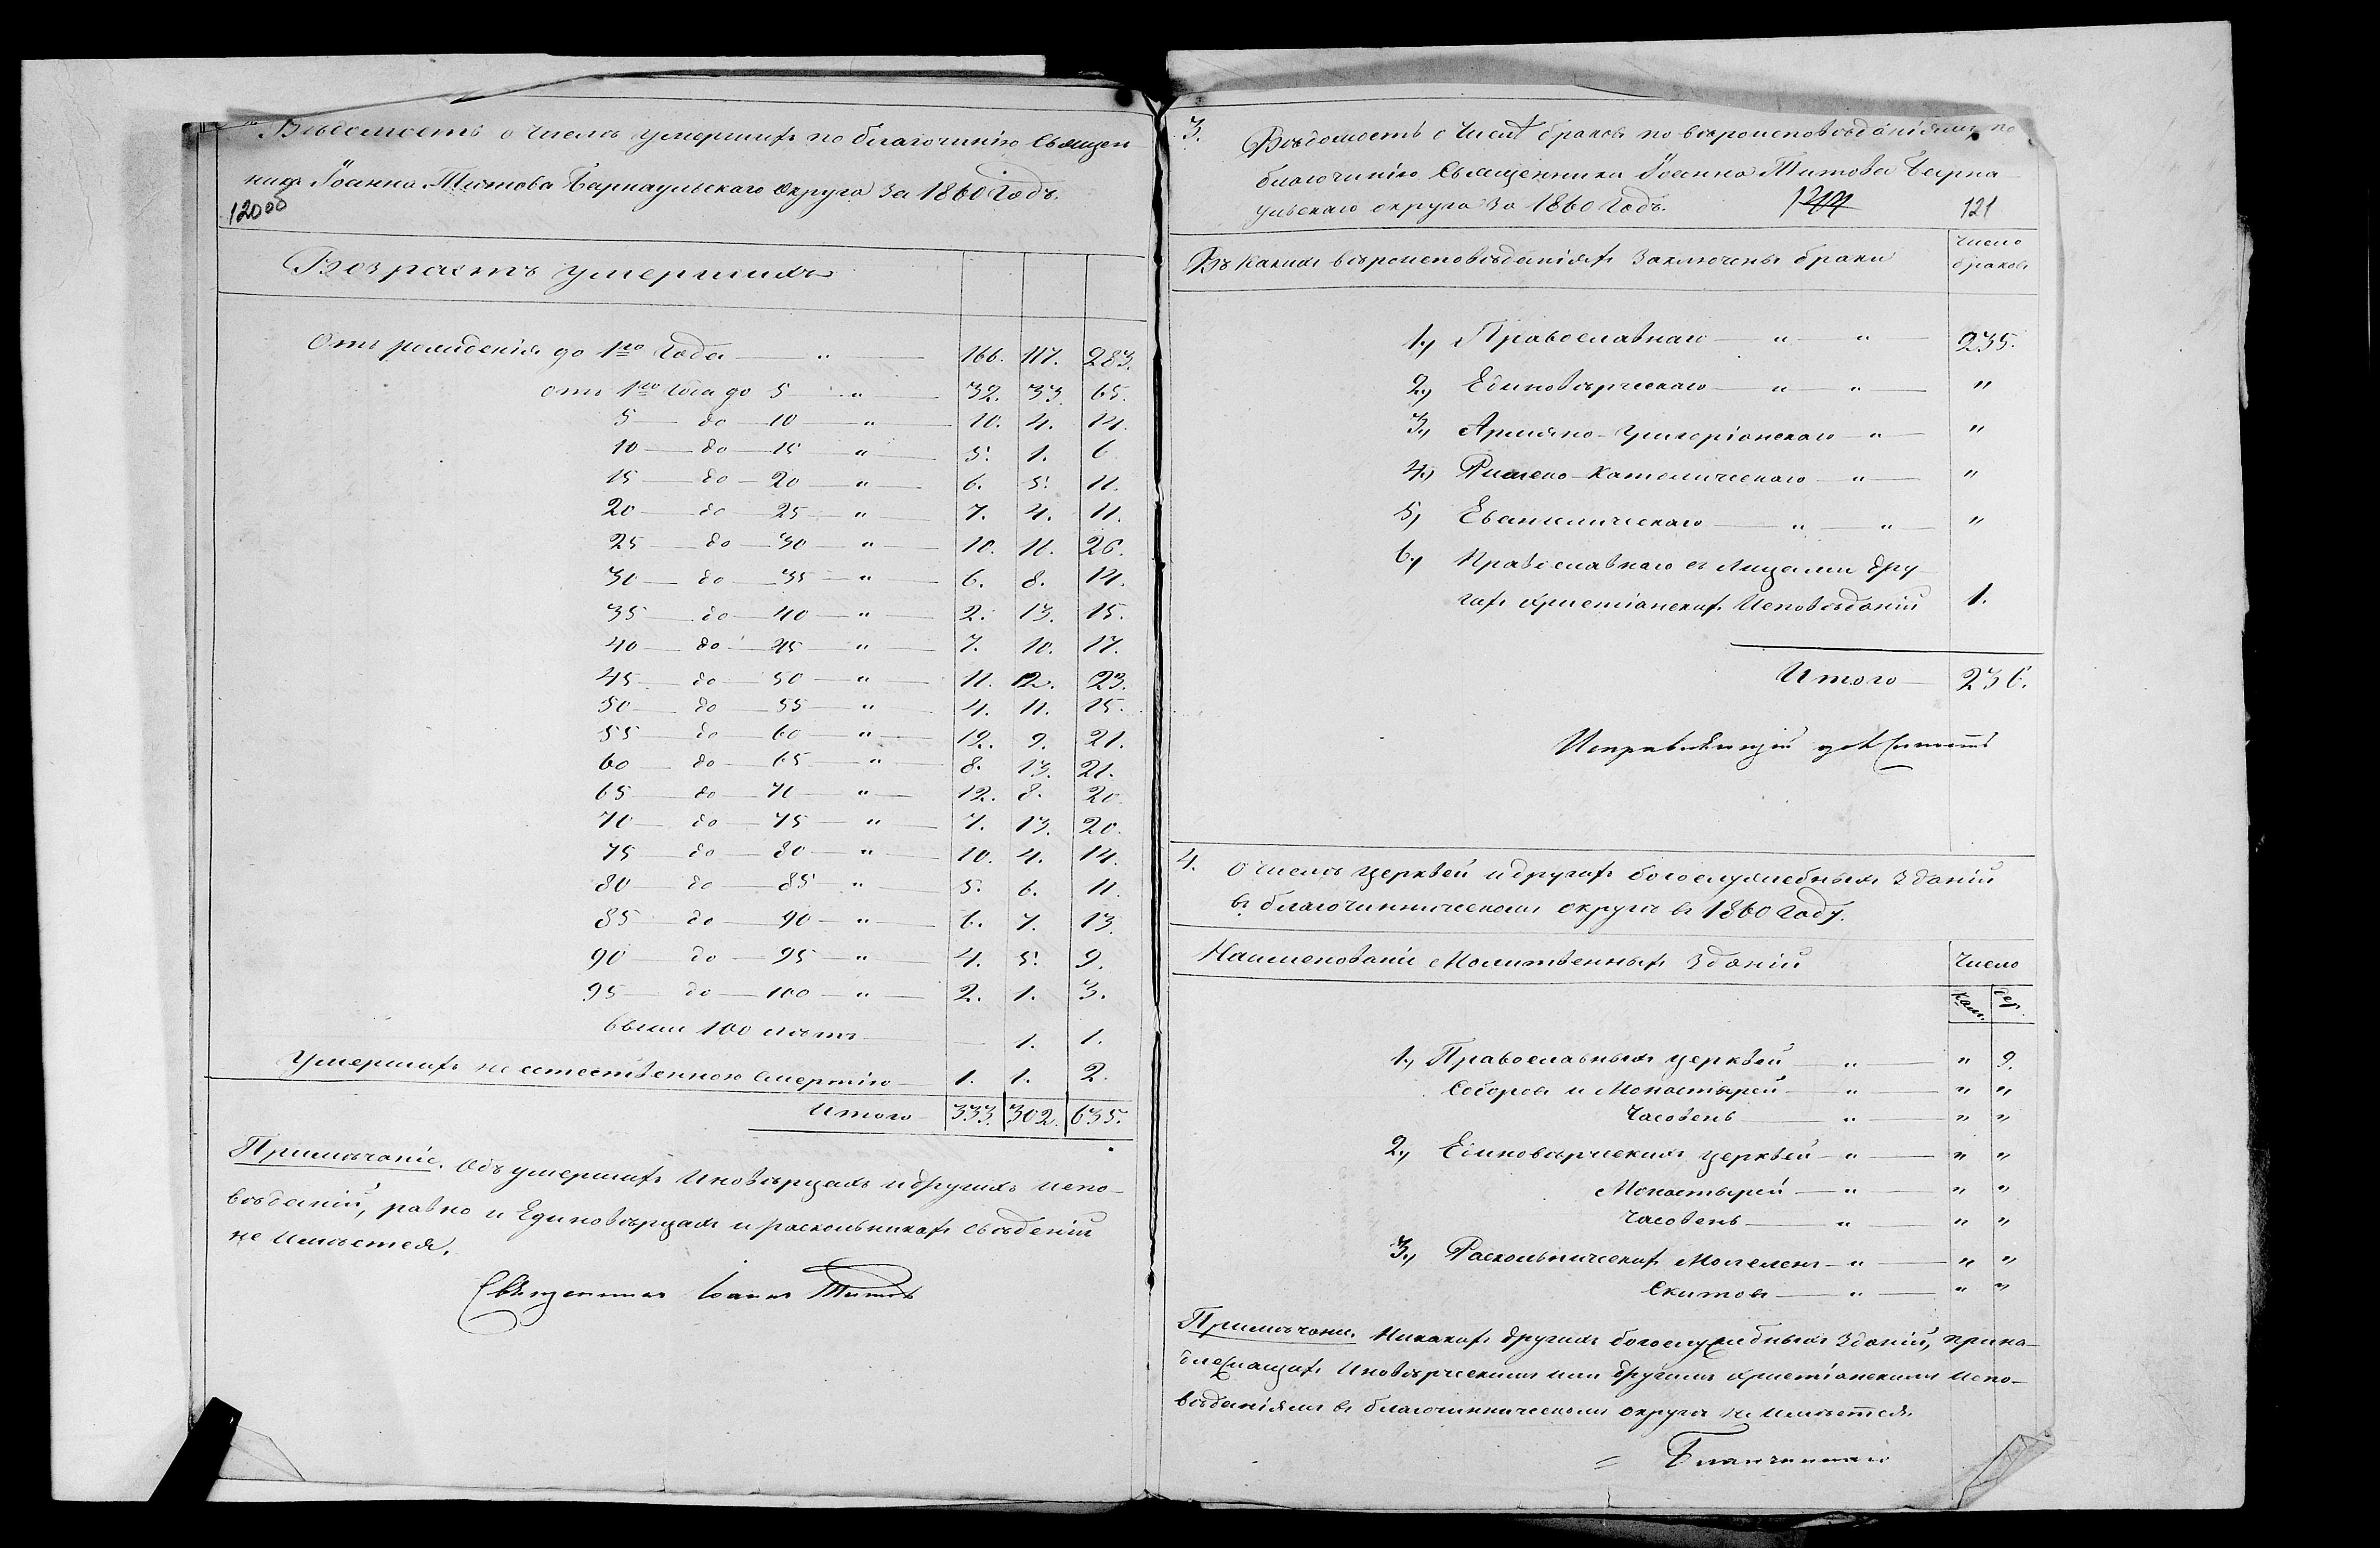 Вѣдомость о числѣ умершихъ по благочинію Священ
ника Іоанна Титова Барнаульскаго округа за 1860 годъ.
120об
Возрастъ умершихъ
Отъ рожденія до 1го года — " — 166. 117. 283.
отъ 1го года до 5 — " — 32. 33. 65.
5 — до — 10 — " — 10. 4. 14.
10 — до — 15 " — 5. 1. 6
15 — до — 20 — " — 6. 5. 11.
20 — до — 25 — " — 7. 4. 11.
25 — до — 30 — " — 10. 11. 26.
30 — до — 35 — " — 6. 8. 14.
35 — до — 40 — " — 2. 13. 15.
40 — до — 45 — " — 7. 10. 17.
45 — до — 50 — " — 11. 12. 23.
50 — до — 55 — " — 4. 11. 15.
55 — до — 60 — " — 12. 9. 21.
60 — до — 65 — " — 8. 13. 21.
65 — до — 70 — " — 12. 8. 20.
70 — до — 75 — " — 7. 13. 20.
75 — до — 80 — " — 10. 4. 14.
80 — до — 85 — " — 5. 6. 11.
85 — до — 90 — " — 6. 7. 13.
90 — до — 95 — " — 4. 5. 9.
95 — до — 100 — " — 2. 1. 3.
свыше 100 лѣтъ — 1. 1.
Умершихъ не естественною смертію — 1. 1. 2.
Итого 333. 302. 635.
Примѣчаніе. Объ умершихъ Иновѣрцахъ и другихъ испо-
вѣданій, равно и Единовѣрцахъ и раскольникахъ свѣденій
не имѣется.
Священникъ Іоаннъ Титовъ
3. Вѣдомость о числѣ браковъ по вѣроисповѣданіямъ по
благочинію Священника Іоанна Титова Барна
ульскаго округа за 1860 годъ.
121
Въ какихъ вѣроисповѣданіяхъ заключены браки
число
браковъ
1., Православнаго — " — " — 235.
2., Единовѣрческаго — " — " — "
3., Армяно-Григоріанскаго — " — "
4., Римско-Католическаго — " — "
5., Евангелическаго — " — " — "
6., Православнаго съ лицами дру
гихъ христіанскихъ исповѣданій 1.
Итого — 236.
4. о числѣ церквей и другихъ богослужебныхъ зданій
въ благочинническомъ округѣ въ 1860 году.
Наименованіе Молитвенныхъ зданій
Число
Кам. Дер.
1., Православныхъ церквей — " — " 9.
Соборовъ и Монастырей — " — " "
Часовень — " — " "
2., Единовѣрческихъ церквей — " — " "
Монастырей — " — " "
Часовень — " — " "
3., Раскольническихъ Молеленъ — " — " "
Скитовъ — " — " "
Примѣчаніе. Никакихъ другихъ богослужебныхъ зданій, прина-
длежащихъ Иновѣрческимъ или другимъ христіанскимъ испо-
вѣданіямъ въ благочинническомъ округѣ не имѣется.
Благочинный